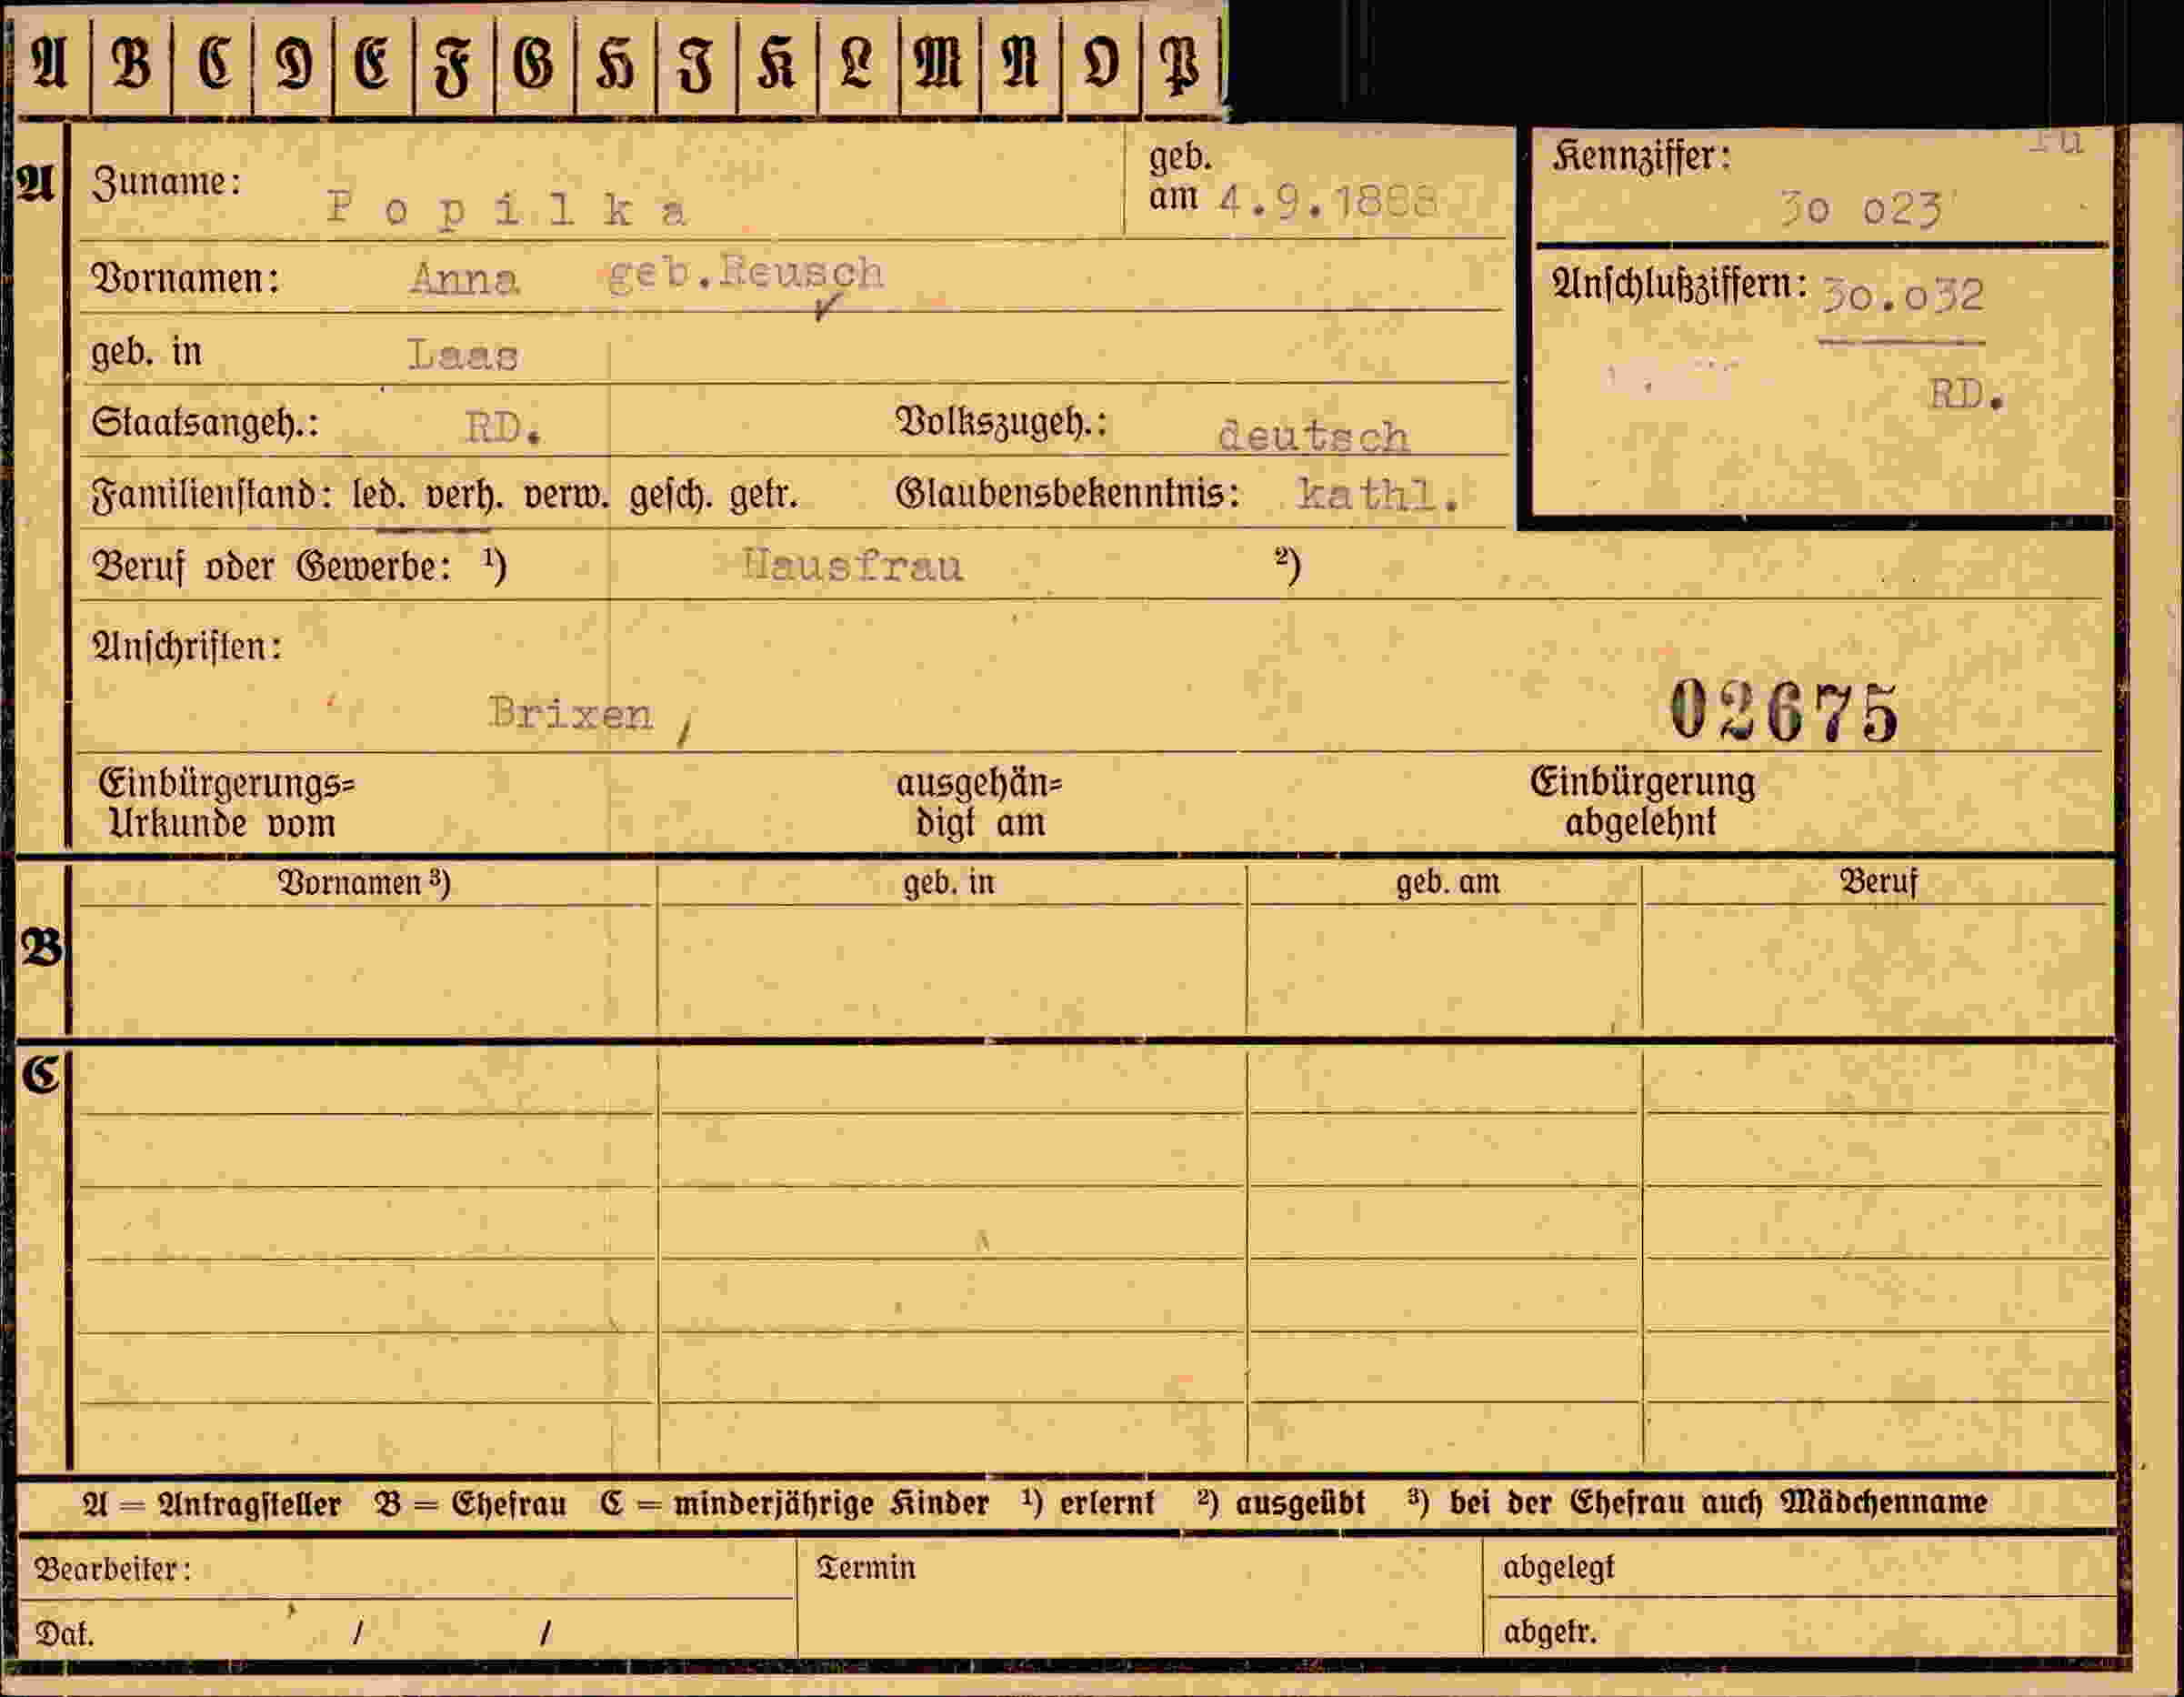 A B C D E F G H J K L M N O P
A Zuname: Popilka geb. am 4.9.1888
Kennziffer: 30 023
Vornamen: Anna geb.Reusch
Anschlußziffern: 30.032
geb. in Laas
RD.
Staatsangeh.: RD. Volkszugeh.: deutsch
Familienstand: led. verh. verw. gesch. getr. Glaubensbekenntnis: kathl.
Beruf oder Gewerbe: ¹) Hausfrau ²)
Anschriften:
Brixen,
02675
Einbürgerungs=
Urkunde vom
ausgehän=
digt am
Einbürgerung
abgelehnt
B Vornamen ³) geb. in geb. am Beruf
C
A = Antragsteller B = Ehefrau C = minderjährige Kinder ¹) erlernt ²) ausgeübt ³) bei der Ehefrau auch Mädchenname
Bearbeiter: Termin abgelegt
Dat. / / abgetr.